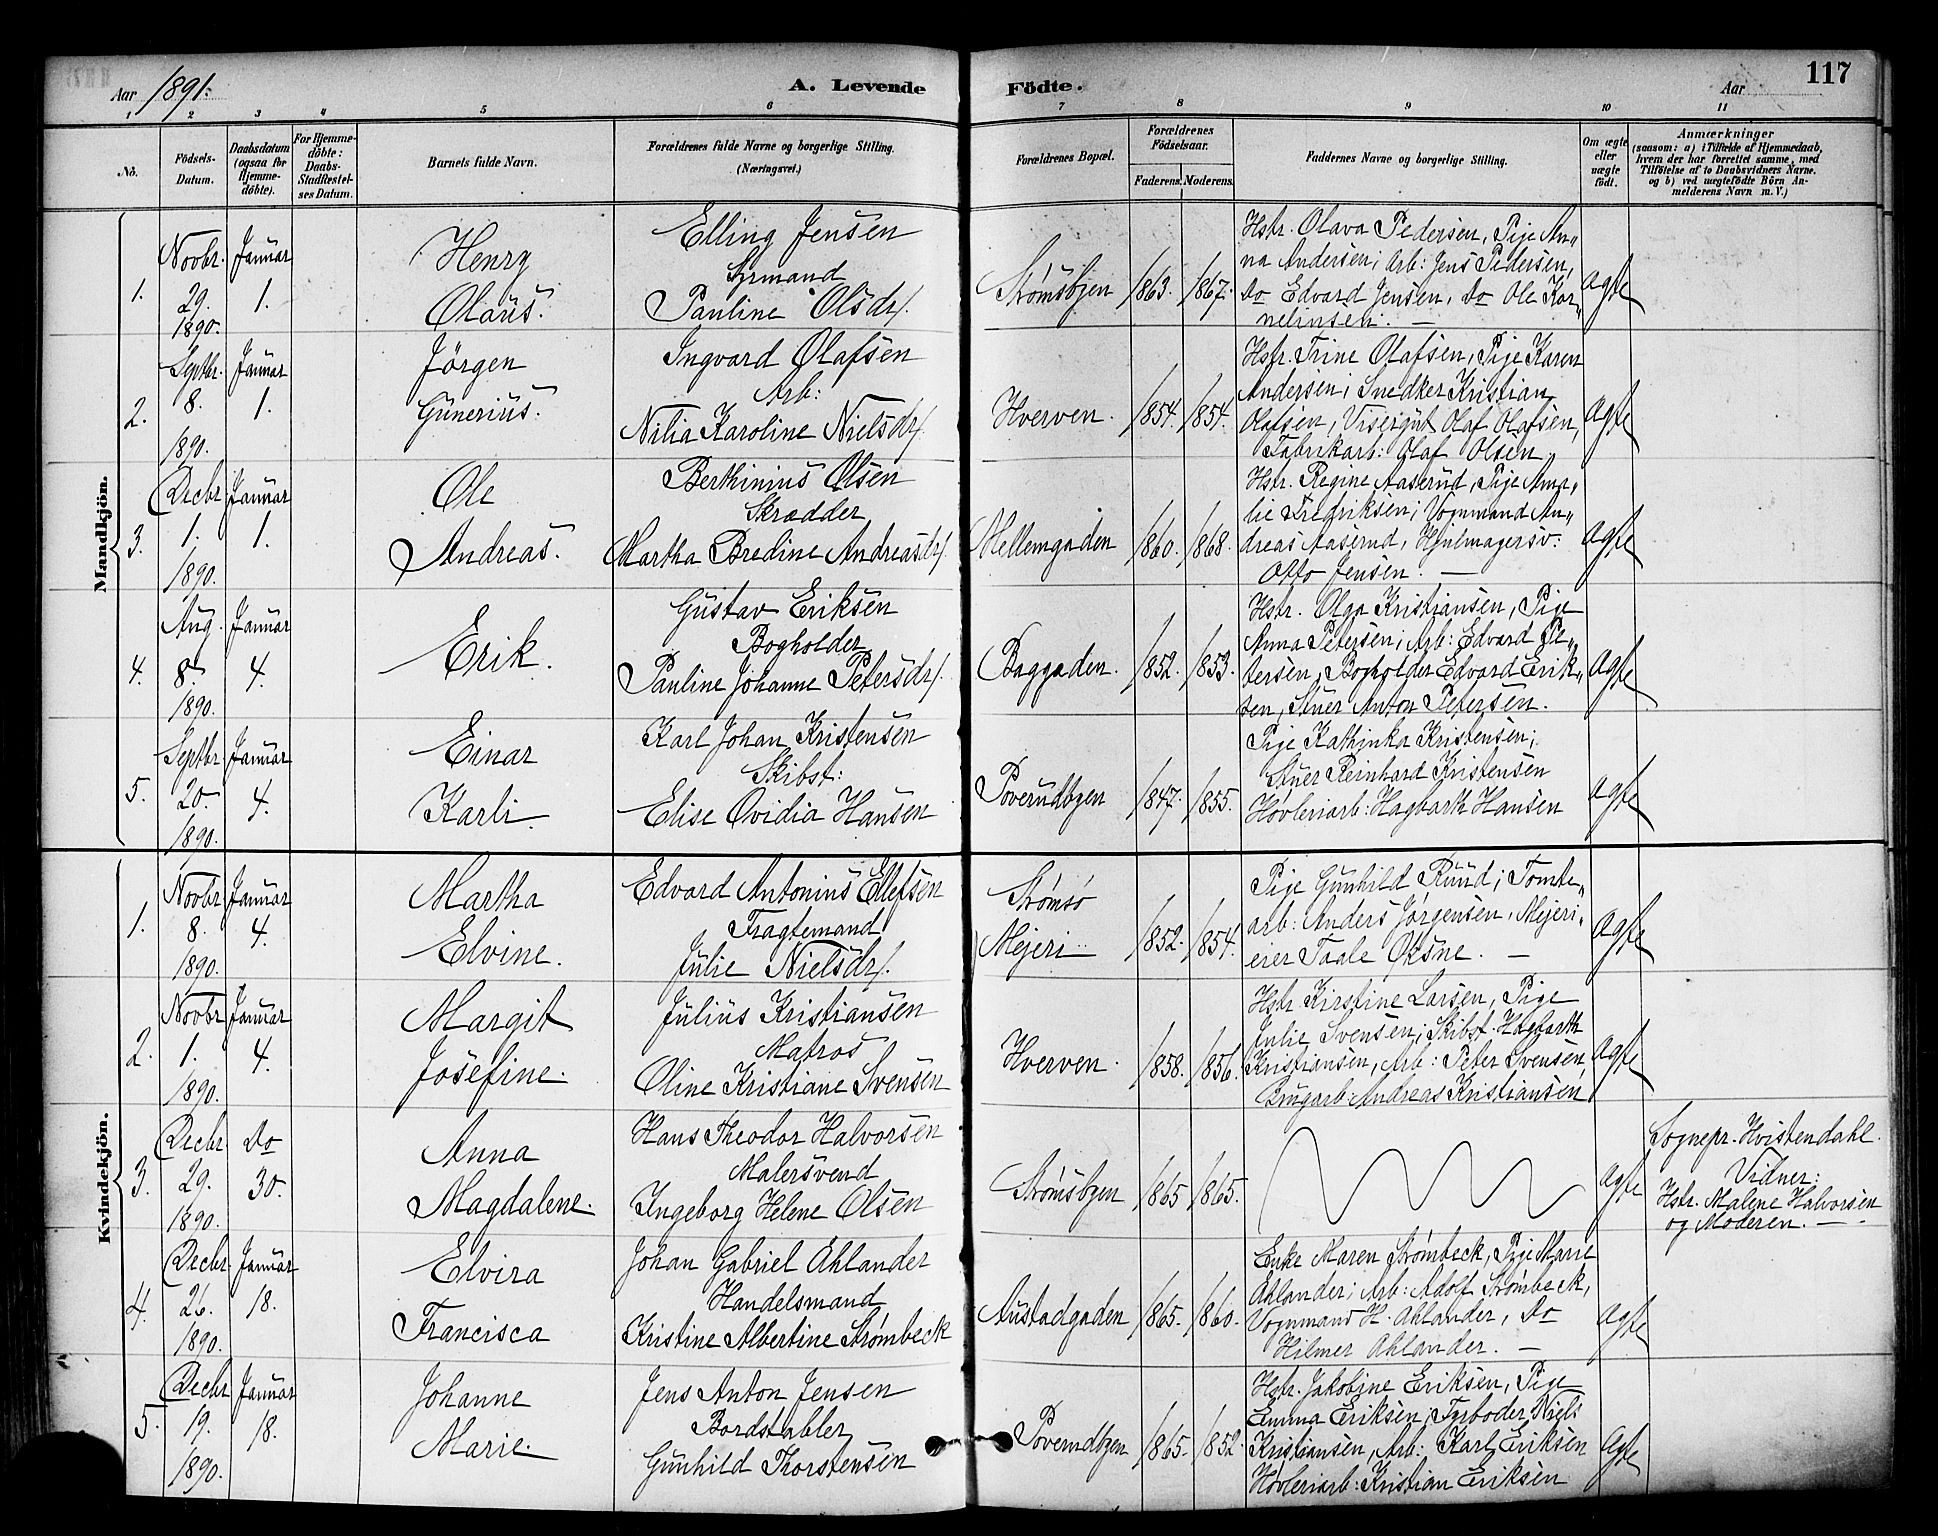 117
Aar 1891. A. Levende Födte. Aar
1 2 3 4 5 6 7 8 9 10 11
No.
Födsels-Datum.
Daabsdatum (ogsaa for Hjemme-döbte).
For Hjemme-döbte: Daabs-Stadfestel-ses Datum.
Barnets fulde Navn.
Forældrenes fulde Navne og borgerlige Stilling.
(Næringsvei.)
Forældrenes Bopæl.
Forældrenes Födselsaar.
Faderens. Moderens.
Faddernes Navne og borgerlige Stilling.
Om ægte eller uægte födt.
Anmærkninger
(saasom: a) i Tilfælde af Hjemmedaab,
hvem der har forrettet samme, med
Tilföielse af to Daabsvidners Navne.
og b) ved uægtefödte Börn An-
melderens Navn m. V.)
Mandkjön.
1.
Novbr. 29. 1890.
Januar 1.
Henry
Olaus.
Elling Jensen
Fyrmand
Pauline Olsdr.
Strømsbyen
1863. 1867.
Hstr. Olava Pedersen, Pige An„
na Andersen; Arb: Jens Pedersen,
Do Edvard Jensen, Do Ole Kor„
nelinsen. —
ægte
2.
Septbr. 8. 1890.
Januar 1.
Jörgen
Gunerius.
Ingvard Olafsen
Arb:
Nilia Karoline Nielsdr.
Hverven.
1854. 1854.
Hstr. Trine Olafsen, Pige Karen
Andersen; Snedker Kristian
Olafsen, Visergut Olaf Olafsen,
Fabrikarb: Olaf Olsen
ægte
3.
Decbr 1. 1890.
Januar 1.
Ole
Andreas.
Berthinius Olsen
Skrædder
Martha Bredine Andreasdr.
Mellemgaden
1860. 1868.
Hstr. Regine Aaserud, Pige Ama„
lie Fredriksen; Vognmand An„
dreas Aaserud, Hjulmagersv:
Otto Jensen. —
ægte
4.
Aug. 8. 1890.
Januar 4.
Erik.
Gustav Eriksen
Bogholder
Pauline Johanne Petersdr.
Baggaden.
1852. 1853.
Hstr. Olga Kristiansen, Pige
Anna Petersen; Arb: Edvard Pe„
tersen, Bogholder Edvard Erik„
sen, Stuer Anton Petersen.
ægte
5.
Septbr 20. 1890.
Januar 4.
Einar
Karli.
Karl Johan Kristensen
Skibst:
Elise Ovidia Hansen
Poverudbyen
1847. 1855.
Pige Kathinka Kristensen;
Stuer Reinhard Kristensen
Høvleriarb: Hagbarth Hansen
ægte
Kvindekjön.
1.
Novbr 8. 1890.
Januar 4.
Martha
Elvine.
Edvard Antonius Ellefsen
Fragtemand
Julie Nielsdr.
Strømsø
Mejeri
1852. 1854.
Pige Gunhild Ruud; Tomte„
arb: Anders Jørgensen, Mejeri„
eier Taale Oksne. —
ægte
2.
Novbr 1. 1890.
Januar 4.
Margit
Josefine.
Julius Kristiansen
Matros
Oline Kristiane Svensen
Hverven.
1858. 1856.
Hstr Kirstine Larsen, Pige
Julie Svensen; Skibst. Hagbarth
Kristiansen, Arb: Peter Svensen,
Brugarb: Andreas Kristiansen
ægte
3.
Decbr 29. 1890.
Do 30.
Anna
Magdalene.
Hans Theodor Halvorsen
Malersvend
Ingeborg Helene Olsen
Strømsbyen
1865 1865.
ægte
Sognepr. Hvistendahl.
Vidner:
Hstr. Malene Halvorsen
og Moderen. —
4.
Decbr 26. 1890.
Januar 18.
Elvira
Francisca
Johan Gabriel Ahlander
Handelsmand
Kristine Albertine Strømbeck
Austadgaden
1865. 1860.
Enke Maren Strømbeck, Pige Marie
Ahlander; Arb: Adolf Strømbeck,
Vognmand H. Ahlander, Do
Hilmer Ahlander. —
ægte
5.
Decbr 19. 1890.
Januar 18.
Johanne
Marie.
Jens Anton Jensen
Bordstabler
Gunhild Thorstensen
Poverudbyen
1865. 1852.
Hstr. Jakobine Eriksen, Pige
Emma Eriksen; Fyrbøder Niels
Kristiansen, Arb: Karl Eriksen
Høvleriarb: Kristian Eriksen
ægte